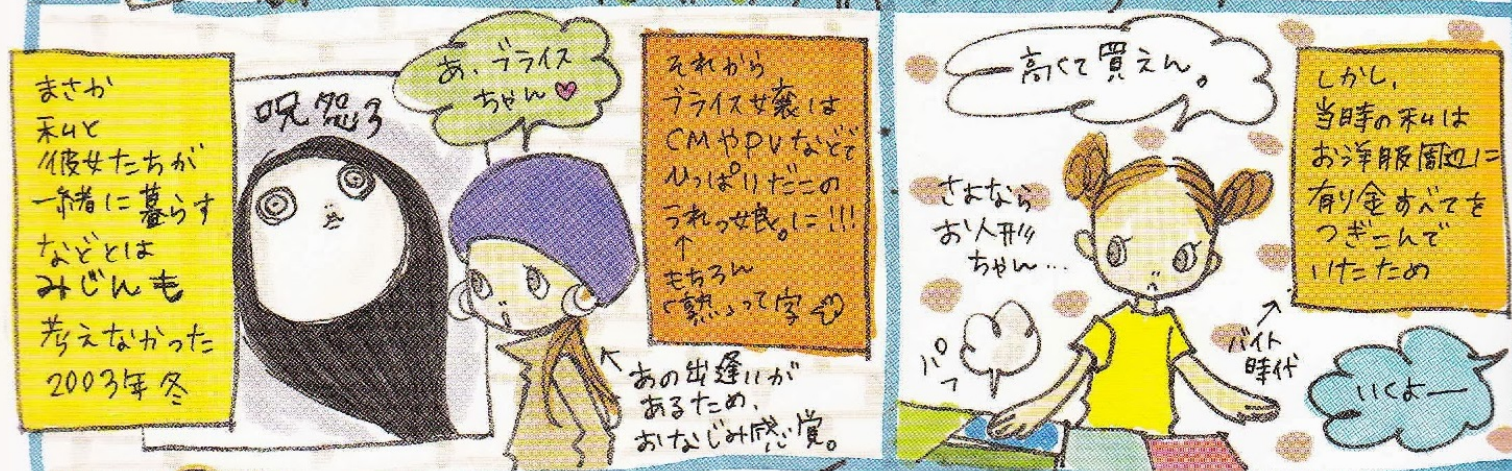 しかし、
当時の私は
お洋服周辺に
有り金すべてを
つぎこんで
いたため
高くて買えん。
さよなら
お人形
ちゃん…
パフ
バイト
時代
いくよー
それから
ブライス嬢は
CMやPVなどで
ひっぱりだこの
うれっ娘。に!!!
もちろん
「熟」って字
あ、ブライス
ちゃん♥
呪怨3
あの出逢いが
あるため、
おなじみ感覚。
まさか
私と
彼女たちが
一緒に暮らす
などとは
みじんも
考えなかった
2003年冬